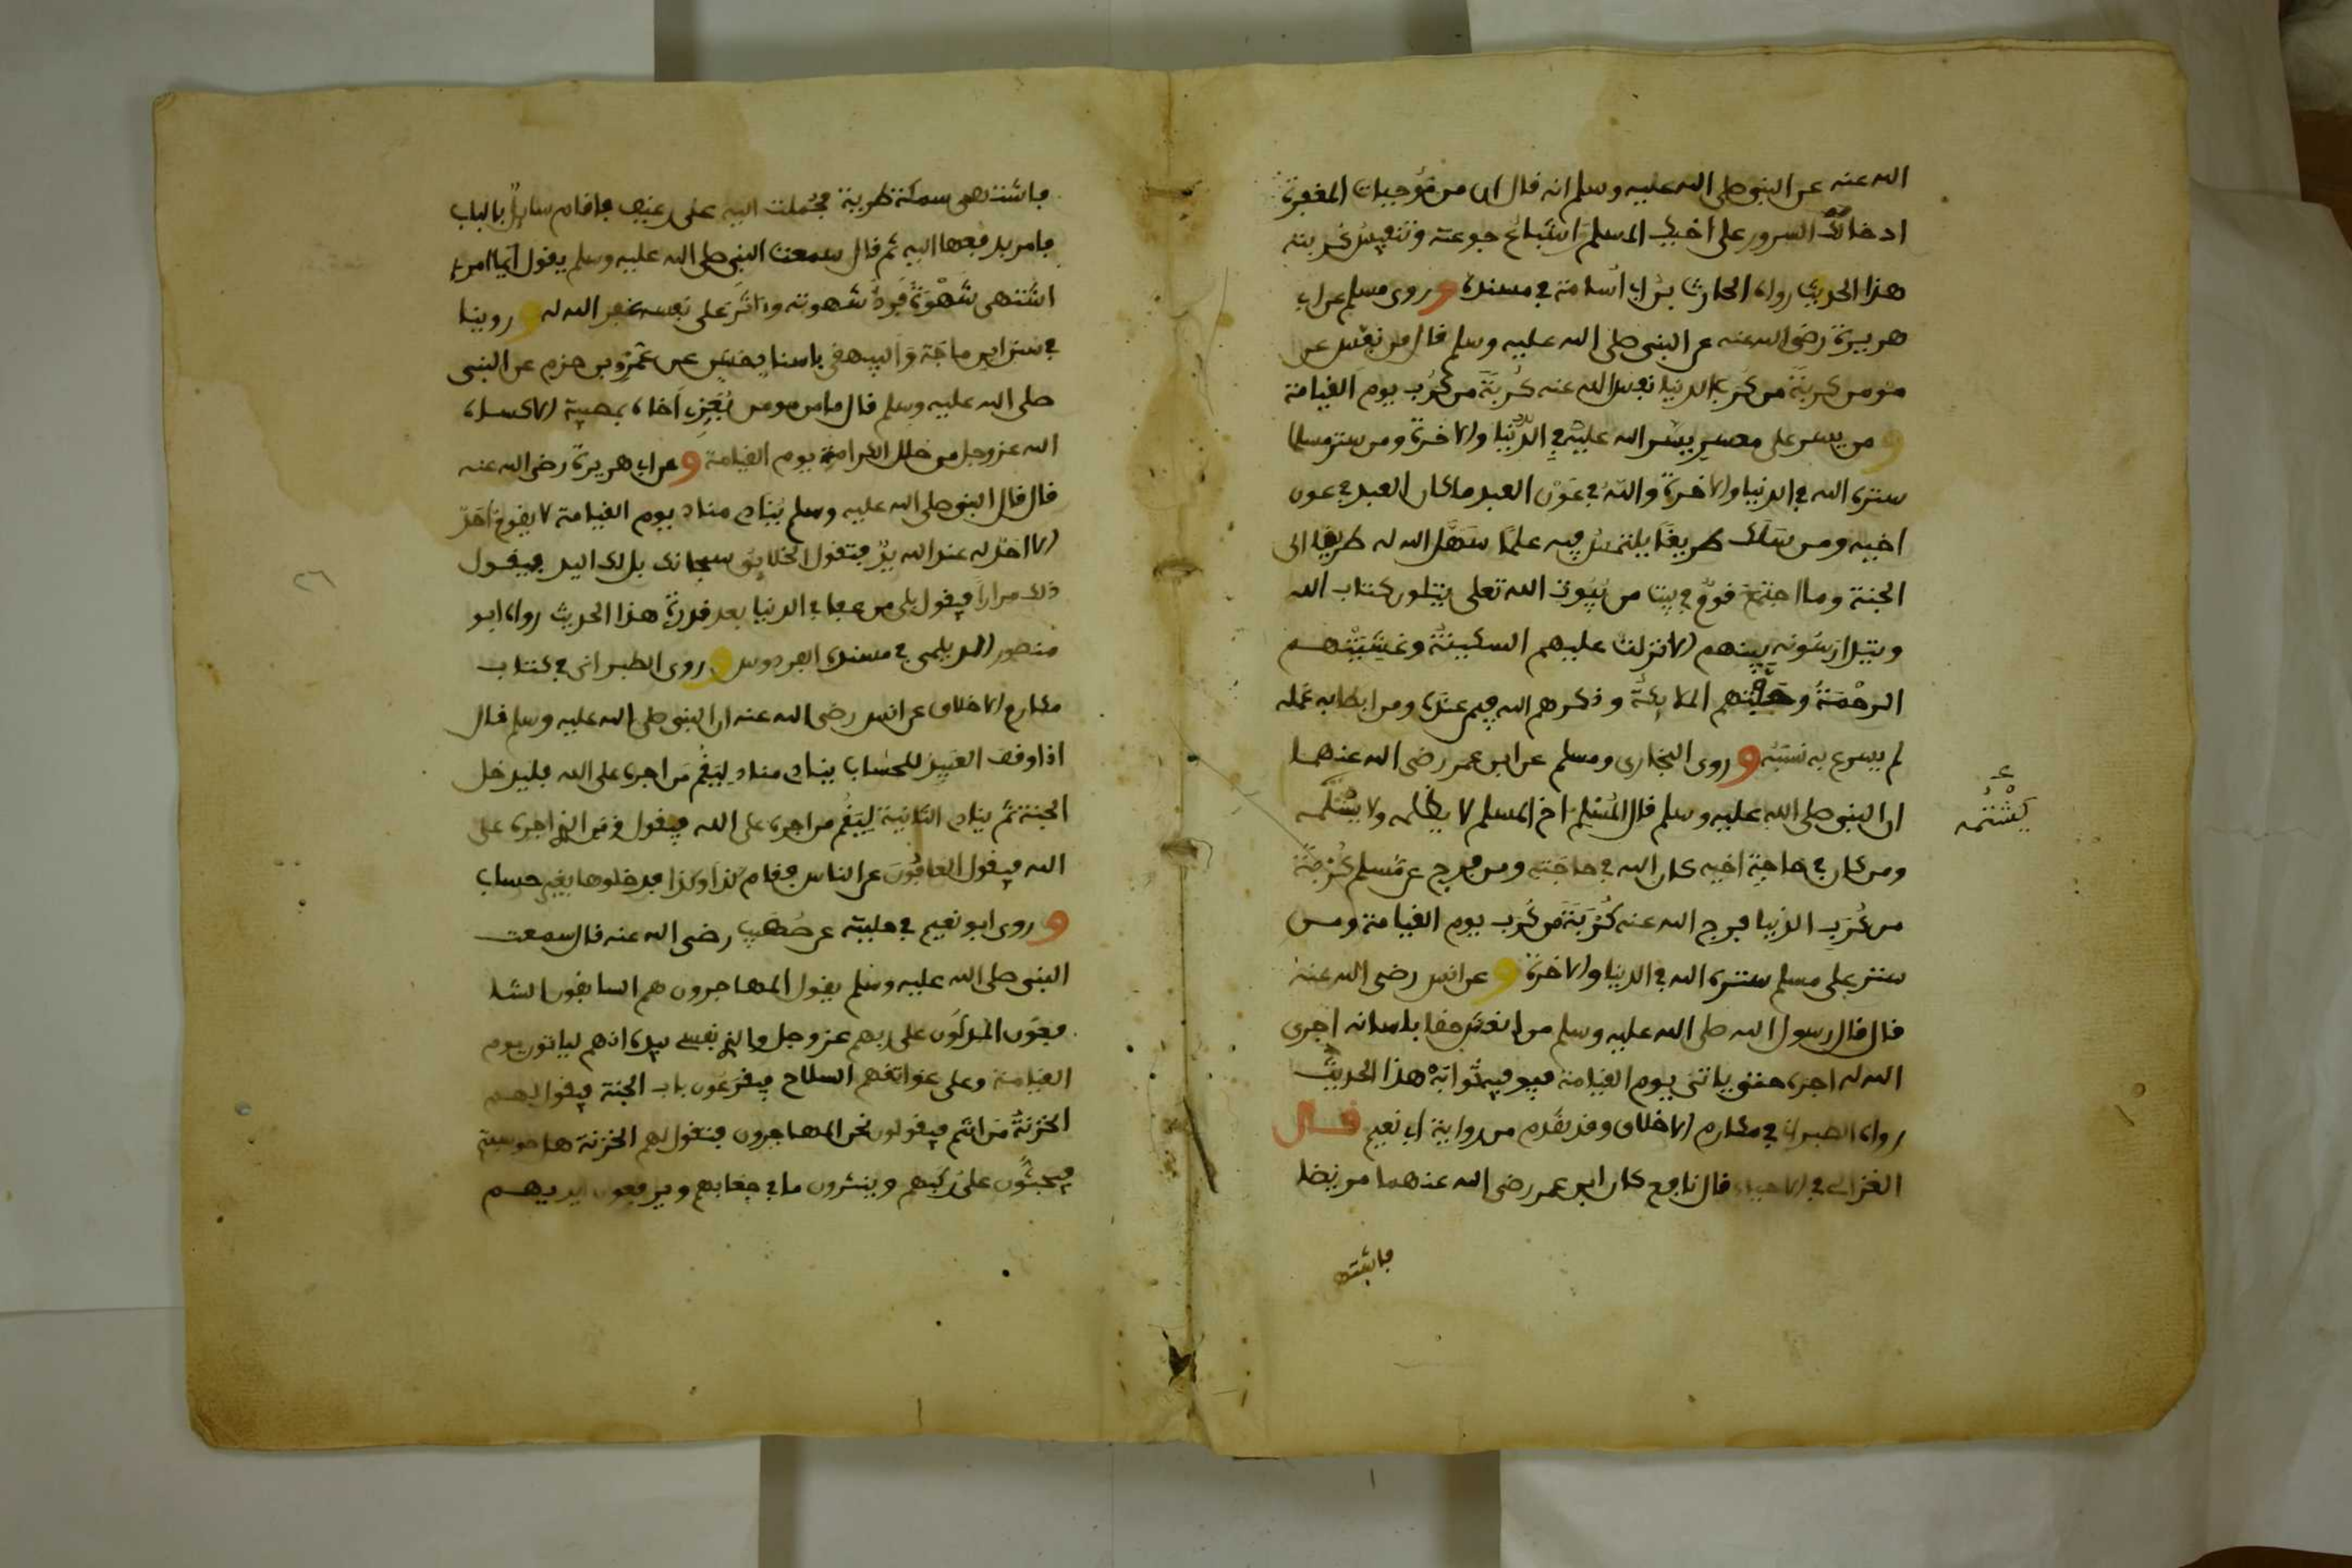 الله عنه عن النبي صلى الله عليه وسلم انه قال ان من مُوجبات المغفرة
ادخالك السرور على اخيك المسلم اشباعُ جوعته وتنفيسُ كربته
هذا الحديث رواه الحارث بنُ ابي أسامة في مسنده و روى مسلم عن ابي
هريرة رضي الله عنه عن النبي صلى الله عليه وسلم قال من نفس عن
مومن كربة من كرب الدنيا نفس الله عنه كُربَة من كُرَب يوم القيامة
و من يسر على معسر يسّر الله عليه في الدُّنيا والاخرة ومن ستر مسلما
ستره الله في الدنيا والاخرة واللهُ في عَوْن العبد ما كان العبد في عون
اخيه ومن سَلَك طريقًا يلتمسُ فيه علمًا سَهَّل الله له طريقا الى
الجنة وما اجتمَعَ قومٌ في بيت من بُيُوت الله تعلى يتلون كتاب الله
ويتدارسُونه بينهم الا نزلت عليهم السكينةُ وغشيَتْهم
الرحْمَةُ وحفَّتهم الملايكةُ وذكرهم الله فيمن عندَه ومن ابطا به عَمَله
لم يسرع به نَسَبُه و روى البخاري ومسلم عن ابن عمر رضي الله عنهما
ان النبي صلى الله عليه وسلم قال المُسْلِمُ اخ المسلم لا يظلمه ولا يشْتمه
يَشْتُمه
ومن كان في حاجَة اخيه كان الله في حاجَته ومن فرج عن مُسلم كُرْبَةً
من كُرَبِ الدنيا فرج الله عنه كُرْبَةً من كُرَب يوم القيامة ومن
ستر على مسلم ستره الله في الدنيا والاخرة و عن انس رضي الله عنه
قال قال رسول الله صلى الله عليه وسلم من انعش حقا بلسانه اجرى
الله له اجره حتى ياتيَ يوم القيامة فيوفيه ثوابَهُ هذا الحديث
رواه الطبراني في مكارم الاخلاق وقد تقدم من رواية ابي نعيم قــال
الغزالي في الاحياء قال نافع كان ابن عمر رضي الله عنهما مريضا
فاشتهى
فاشتهى سمكة طرية فحُملت اليه على رغيف فاقام سايلٌ بالباب
فامر بدفعها اليه ثم قال سمعت النبي صلى الله عليه وسلم يقول ايما امرء
اشتهى شَهْوَةً فرد شهوته واثَر على نفسه غفر الله له و روينا
في سنن ابن ماجَة وَالبيهقي باسناد حسن عن عَمْرو بن حزم عن النبي
صلى الله عليه وسلم قال ما من مومن يُعَزِي اَخاه بمصيبة الا كساه
الله عز وجل من حلل الكرامة يوم القيامة و عن ابي هريرة رضي الله عنه
قال قال النبي صلى الله عليه وسلم يُنادي مناد يوم القيامة لا يقوم احدٌ
الا احدٌ له عند الله يدٌ فتقول الخلايق سبحانك بل لك اليد فيقول
ذلك مرارا فيقول بلى من عفا في الدنيا بعد قدرة هذا الحديث رواه ابو
٢٦
منصور الديلمي في مسنده الفردوس و روى الطبراني في كتاب
مكارم الاخلاق عن انس رضي الله عنه ان النبي صلى الله عليه وسلم قال
اذا وقف العَبيد للحساب ينادي مناد ليَقُم مَن اجره على الله فليدخل
الجنة ثم ينادي الثانية لِيَقُم من اجره على الله فيقول ومن الذي اجره على
الله فيقول العافُونَ عن الناس فقام كذا وكذا فدخلوها بغير حساب
و روى ابو نعيم في حلية عن صُهَيب رضي الله عنه قال سمعت
النبي صلى الله عليه وسلم يقول المهاجرون هم السابقون الشا
فعون المدلُون على ربهم عز وجل والذي نفسي بيده انهم لياتون يوم
القيامة وعلى عواتقهم السلاح فيقرَعُون باب الجنة فيقول لهم
الخزنةُ مَن انتم فيقولون نحن المهاجرون فتقول لهم الخزنة هل حوسبتم
فيجثُون على رُكَبهم وينثرون ما في جعابهم ويرفعون ايديهم